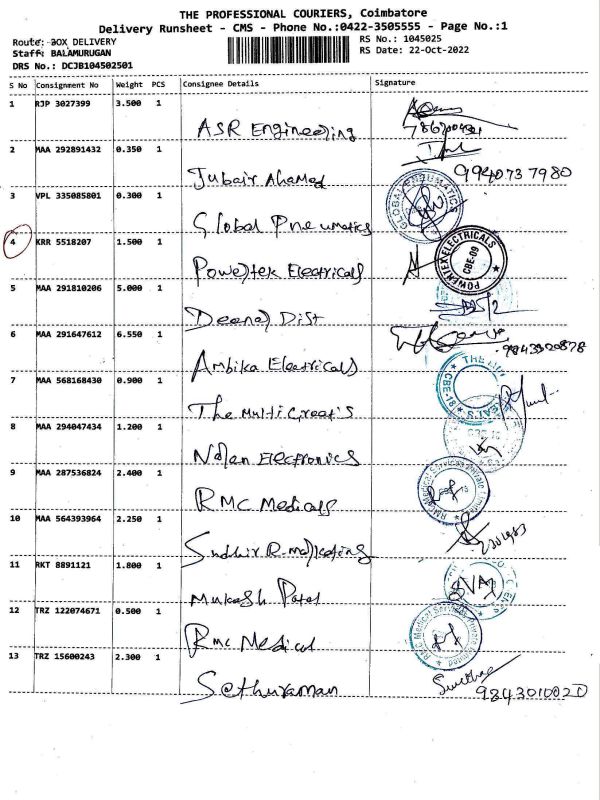 THE PROFESSIONAL COURIERS, Coimbatore
Delivery Runsheet - CMS - Phone No.:0422-3505555 - Page No.:1
Route: BOX DELIVERY
RS No.: 1045025
Staff: BALAMURUGAN
RS Date: 22-Oct-2022
DRS No.: DCJB104502501
S No Consignment No Weight PCS Consignee Details Signature
1 RJP 3027399 3.500 1
ASR Engineering
2 MAA 292891432 0.350 1
Jubair Ahamed 9940737980
3 VPL 335085801 0.300 1
Global Pneumatics
GLOBAL PNEUMATICS
4 KRR 5518207 1.500 1
Powertek Electricals
POWERTEX ELECTRICALS
CBE-09
5 MAA 291810206 5.000 1
Deenaj Dist
6 MAA 291647612 6.550 1
Ambika Electricals
7 MAA 568168430 0.900 1
The Multi Creat's
8 MAA 294047434 1.200 1
Nolen Electronics
9 MAA 287536824 2.400 1
RMC Medicals
RMC Medical Services Private Limited
10 MAA 564393964 2.250 1
Sudhir R. Marketing
11 RKT 8891121 1.800 1
Mukesh Patel
12 TRZ 122074671 0.500 1
RMC Medical
RMC Medical Services Private Limited
13 TRZ 15600243 2.300 1
Sethuraman 9843010020